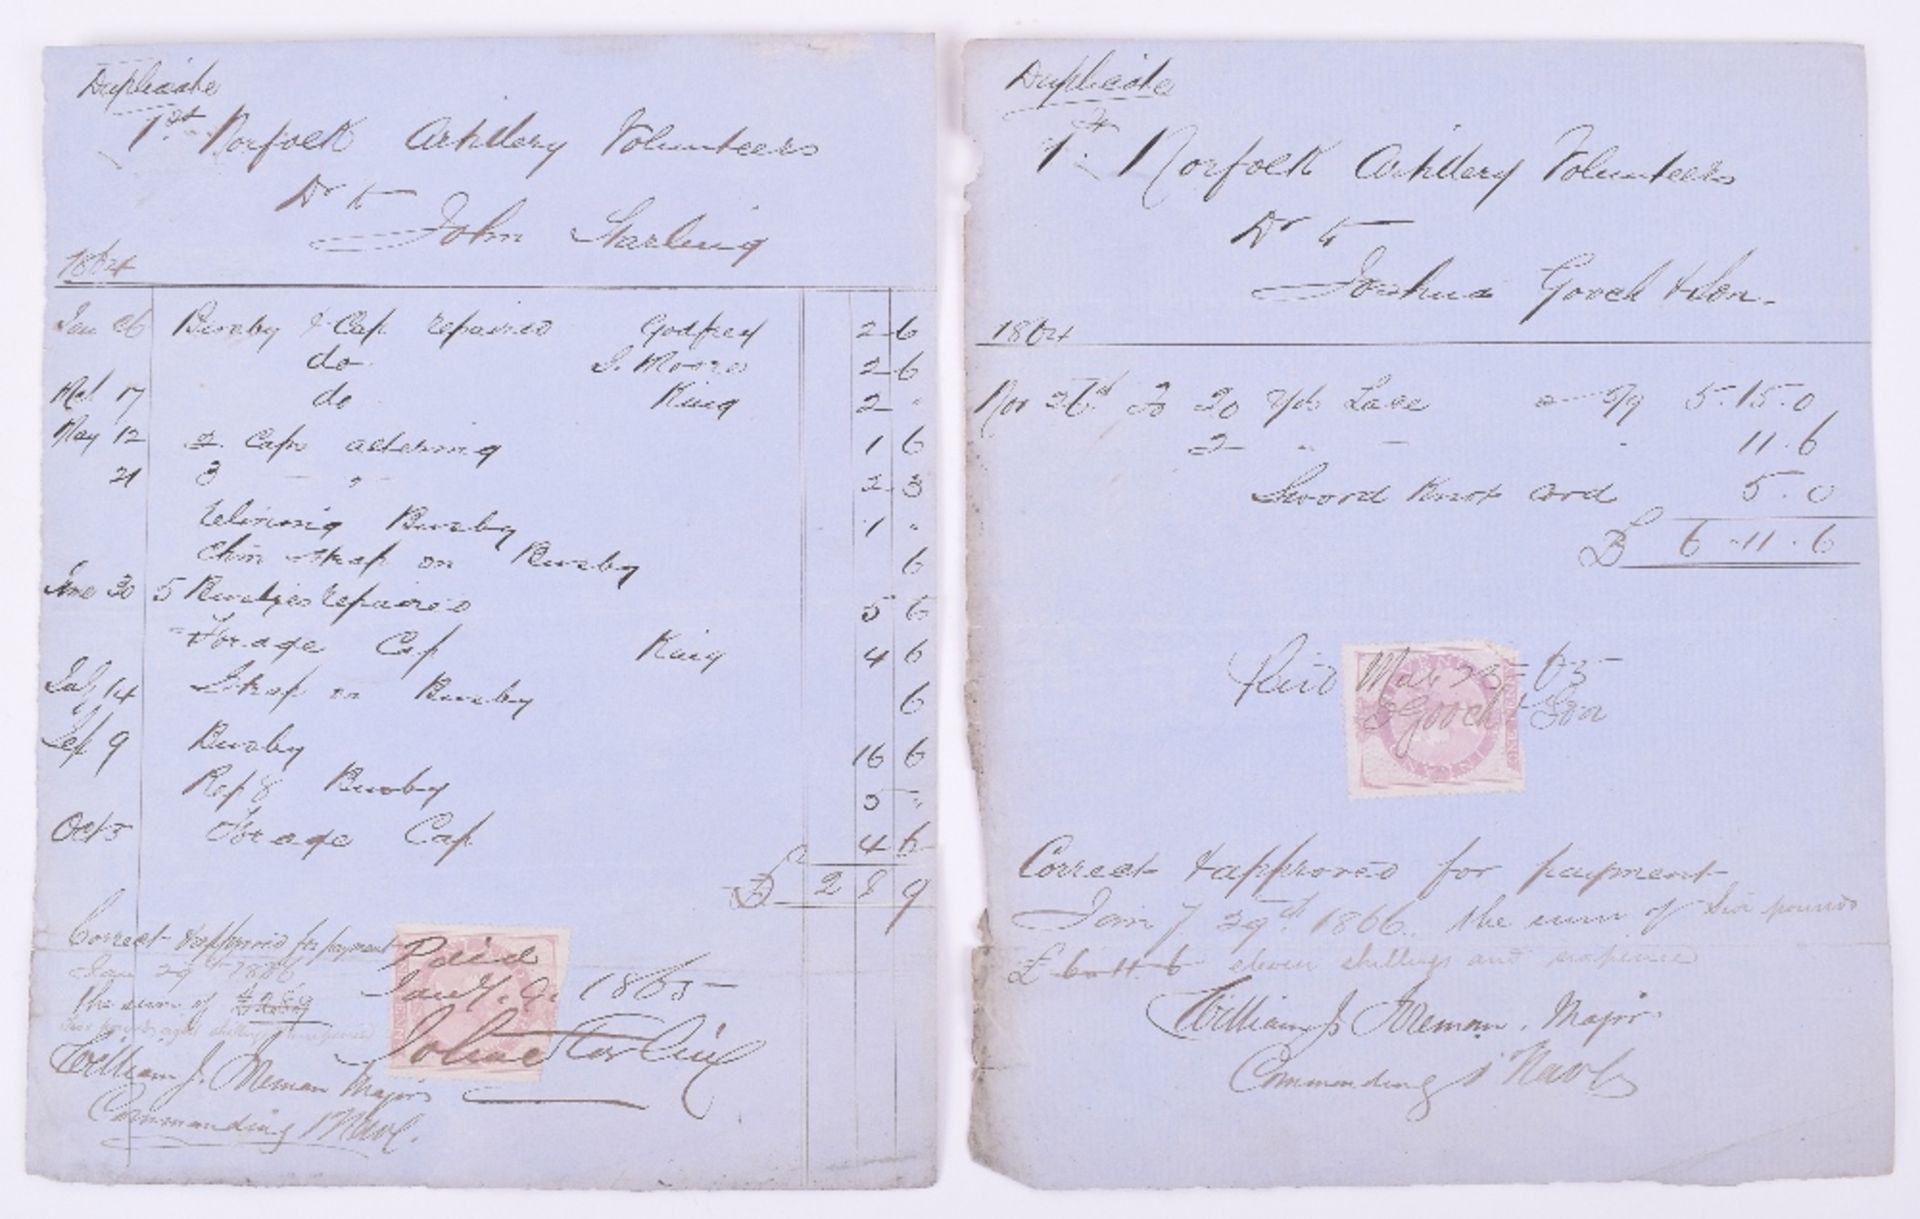 Duplicate
1st Norfolk Artillery Volunteers
Dr to
John Starling
1864
Jan 26 Busby & Cap repaired Godfrey 2 6
do J. Moores 2 6
Mch 17 do King 2 "
May 12 2 Caps altering 1 6
21 3 - " 2 3
Relining Busby 1 "
Chin strap on Busby 6
June 30 5 Busbies repaired 5 6
Forage Cap King 4 6
July 14 Strap on Busby 6
Sep 9 Busby 16 6
Rep 8 Busby 5 "
Oct 5 Forage Cap 4 6
£ 2 8 9
Correct & approved for payment
Jan 29th 1866
the sum of £2 8 9
two pounds eight shillings & ninepence
William J. Foreman Major
Commanding 1 NAVC.
Paid
Jany. 9. 1865
John Starling
Duplicate
1st Norfolk Artillery Volunteers
Dr to
Joshua Gooch & Son.
1864
Nov 26th To 20 Yds Lace a 5/9 5.15.0
2 " - " 11.6
Sword Knot cord 5.0
£ 6.11.6
Paid Mar 25 65
J Gooch & Son
Correct & approved for payment
Jany 29th 1866. the sum of Six pounds
£ 6 11 6 eleven shillings and sixpence
William J. Foreman. Major
Commanding 1 NAVC